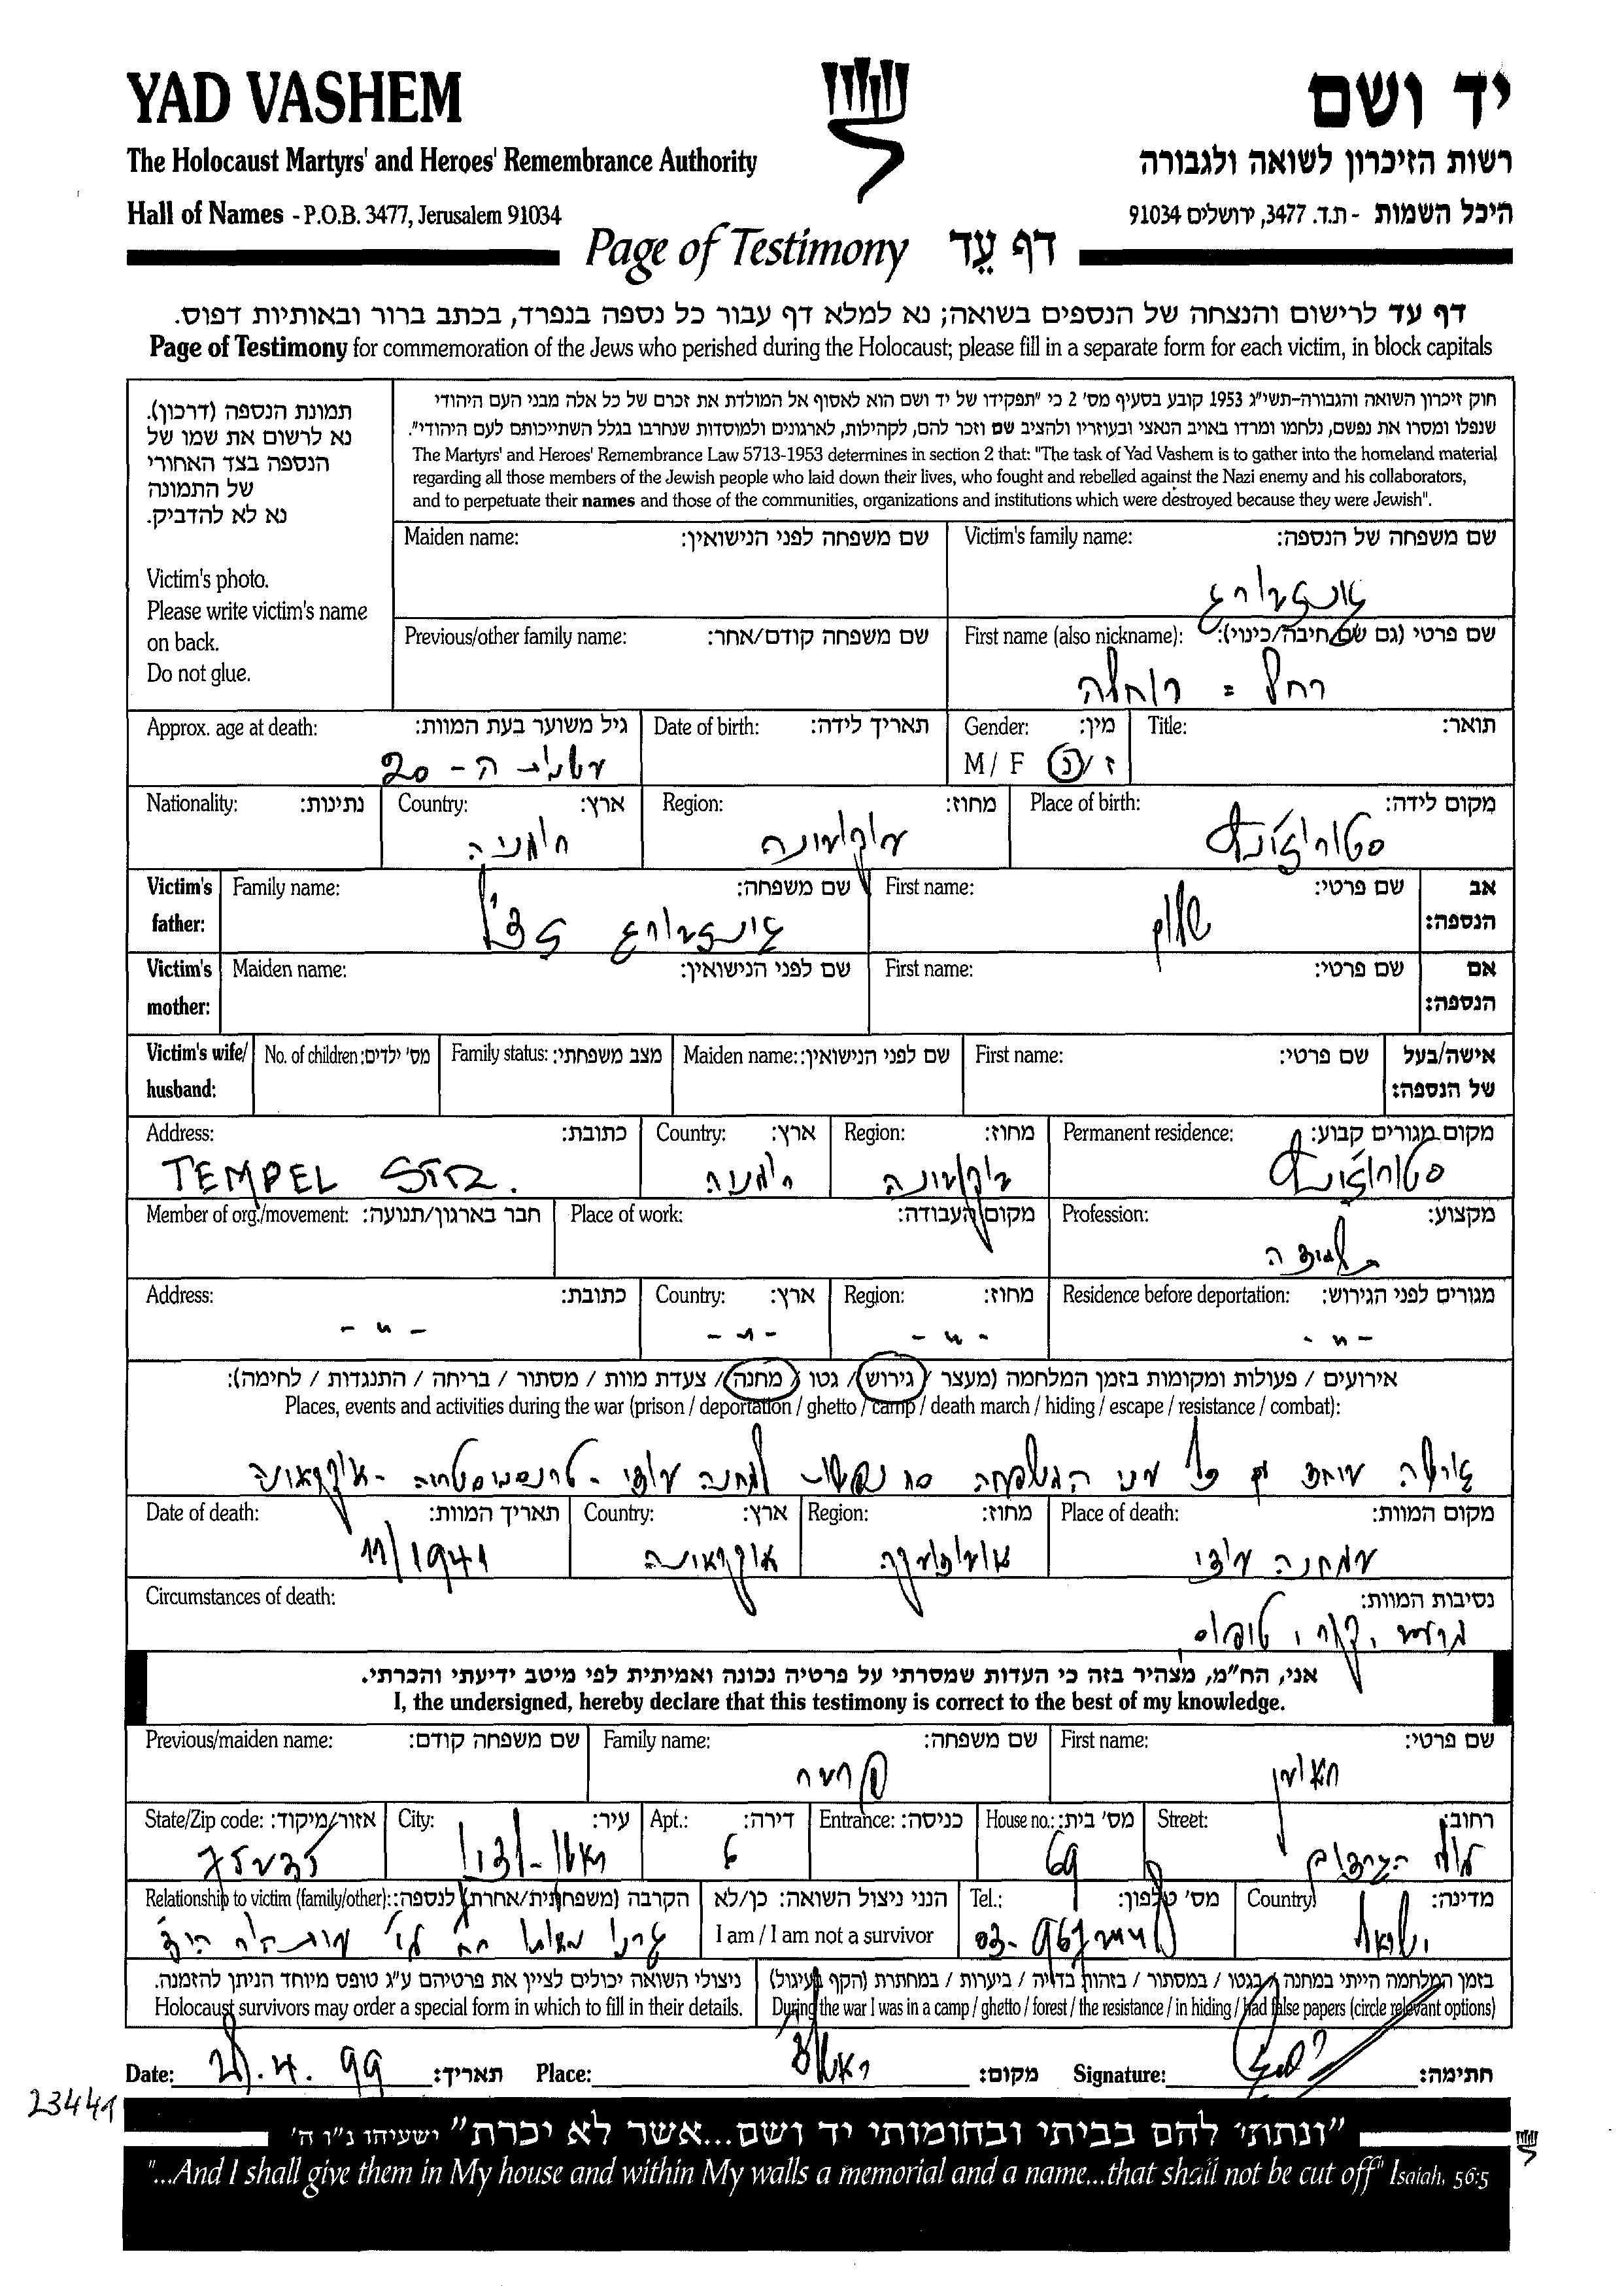 YAD VASHEM
יד ושם
The Holocaust Martyrs' and Heroes' Remembrance Authority
רשות הזיכרון לשואה ולגבורה
Hall of Names - P.O.B. 3477, Jerusalem 91034
היכל השמות - ת.ד. 3477, ירושלים 91034
Page of Testimony דף עֵד
דף עד לרישום והנצחה של הנספים בשואה; נא למלא דף עבור כל נספה בנפרד, בכתב ברור ובאותיות דפוס.
Page of Testimony for commemoration of the Jews who perished during the Holocaust; please fill in a separate form for each victim, in block capitals
תמונת הנספה (דרכון).
נא לרשום את שמו של
הנספה בצד האחורי
של התמונה
נא לא להדביק.
Victim's photo.
Please write victim's name
on back.
Do not glue.
חוק זיכרון השואה והגבורה-תשי"ג 1953 קובע בסעיף מס' 2 כי "תפקידו של יד ושם הוא לאסוף אל המולדת את זכרם של כל אלה מבני העם היהודי
שנפלו ומסרו את נפשם, נלחמו ומרדו באויב הנאצי ובעוזריו ולהציב שם וזכר להם, לקהילות, לארגונים ולמוסדות שנחרבו בגלל השתייכותם לעם היהודי".
The Martyrs' and Heroes' Remembrance Law 5713-1953 determines in section 2 that: "The task of Yad Vashem is to gather into the homeland material
regarding all those members of the Jewish people who laid down their lives, who fought and rebelled against the Nazi enemy and his collaborators,
and to perpetuate their names and those of the communities, organizations and institutions which were destroyed because they were Jewish".
Victim's family name: שם משפחה של הנספה:
Maiden name: שם משפחה לפני הנישואין:
First name (also nickname): שם פרטי (גם שם חיבה/כינוי):
רחל = רוחלה
Previous/other family name: שם משפחה קודם/אחר:
Title: תואר:
Gender: מין:
M / F ז / נ
Date of birth: תאריך לידה:
Approx. age at death: גיל משוער בעת המוות:
בשנות ה-20
Place of birth: מקום לידה:
סטורוז'ינץ
Region: מחוז:
בוקובינה
Country: ארץ:
רומניה
Nationality: נתינות:
Victim's father: אב הנספה:
First name: שם פרטי:
Family name: שם משפחה:
ז"ל
Victim's mother: אם הנספה:
First name: שם פרטי:
Maiden name: שם לפני הנישואין:
Victim's wife/ husband: אישה/בעל של הנספה:
First name: שם פרטי:
Maiden name: שם לפני הנישואין:
Family status: מצב משפחתי:
No. of children: מס' ילדים:
Permanent residence: מקום מגורים קבוע:
סטורוז'ינץ
Region: מחוז:
בוקובינה
Country: ארץ:
רומניה
Address: כתובת:
TEMPEL STR.
Profession: מקצוע:
תלמידה
Place of work: מקום העבודה:
Member of org./movement: חבר בארגון/תנועה:
Residence before deportation: מגורים לפני הגירוש:
- " -
Region: מחוז:
- " -
Country: ארץ:
- " -
Address: כתובת:
- " -
אירועים / פעולות ומקומות בזמן המלחמה (מעצר / גירוש / גטו / מחנה / צעדת מוות / מסתור / בריחה / התנגדות / לחימה):
Places, events and activities during the war (prison / deportation / ghetto / camp / death march / hiding / escape / resistance / combat):
כל בני המשפחה נפשות למחנה - טרנסניסטריה - אוקראינה
Place of death: מקום המוות:
במחנה
Region: מחוז:
Country: ארץ:
אוקראינה
Date of death: תאריך המוות:
11/1941
Circumstances of death: נסיבות המוות:
קור, טיפוס
אני, הח"מ, מצהיר בזה כי העדות שמסרתי על פרטיה נכונה ואמיתית לפי מיטב ידיעתי והכרתי.
I, the undersigned, hereby declare that this testimony is correct to the best of my knowledge.
First name: שם פרטי:
ראובן
Family name: שם משפחה:
Previous/maiden name: שם משפחה קודם:
Street: רחוב:
House no.: מס' בית:
69
Entrance: כניסה:
Apt.: דירה:
6
City: עיר:
ראשל"צ
State/Zip code: אזור/מיקוד:
Country: מדינה:
ישראל
Tel.: מס' טלפון:
I am / I am not a survivor הנני ניצול השואה: כן/לא
Relationship to victim (family/other): הקרבה (משפחתית/אחרת) לנספה:
בזמן המלחמה הייתי במחנה / בגטו / במסתור / בזהות בדויה / ביערות / במחתרת (הקף בעיגול)
During the war I was in a camp / ghetto / forest / the resistance / in hiding / had false papers (circle relevant options)
ניצולי השואה יכולים לציין את פרטיהם ע"ג טופס מיוחד הניתן להזמנה.
Holocaust survivors may order a special form in which to fill in their details.
Date: תאריך: Place: ראשל"צ מקום: Signature: חתימה:
23441
"ונתתי להם בביתי ובחומותי יד ושם...אשר לא יכרת" ישעיהו נ"ו ה'
"...And I shall give them in My house and within My walls a memorial and a name...that shall not be cut off" Isaiah, 56:5